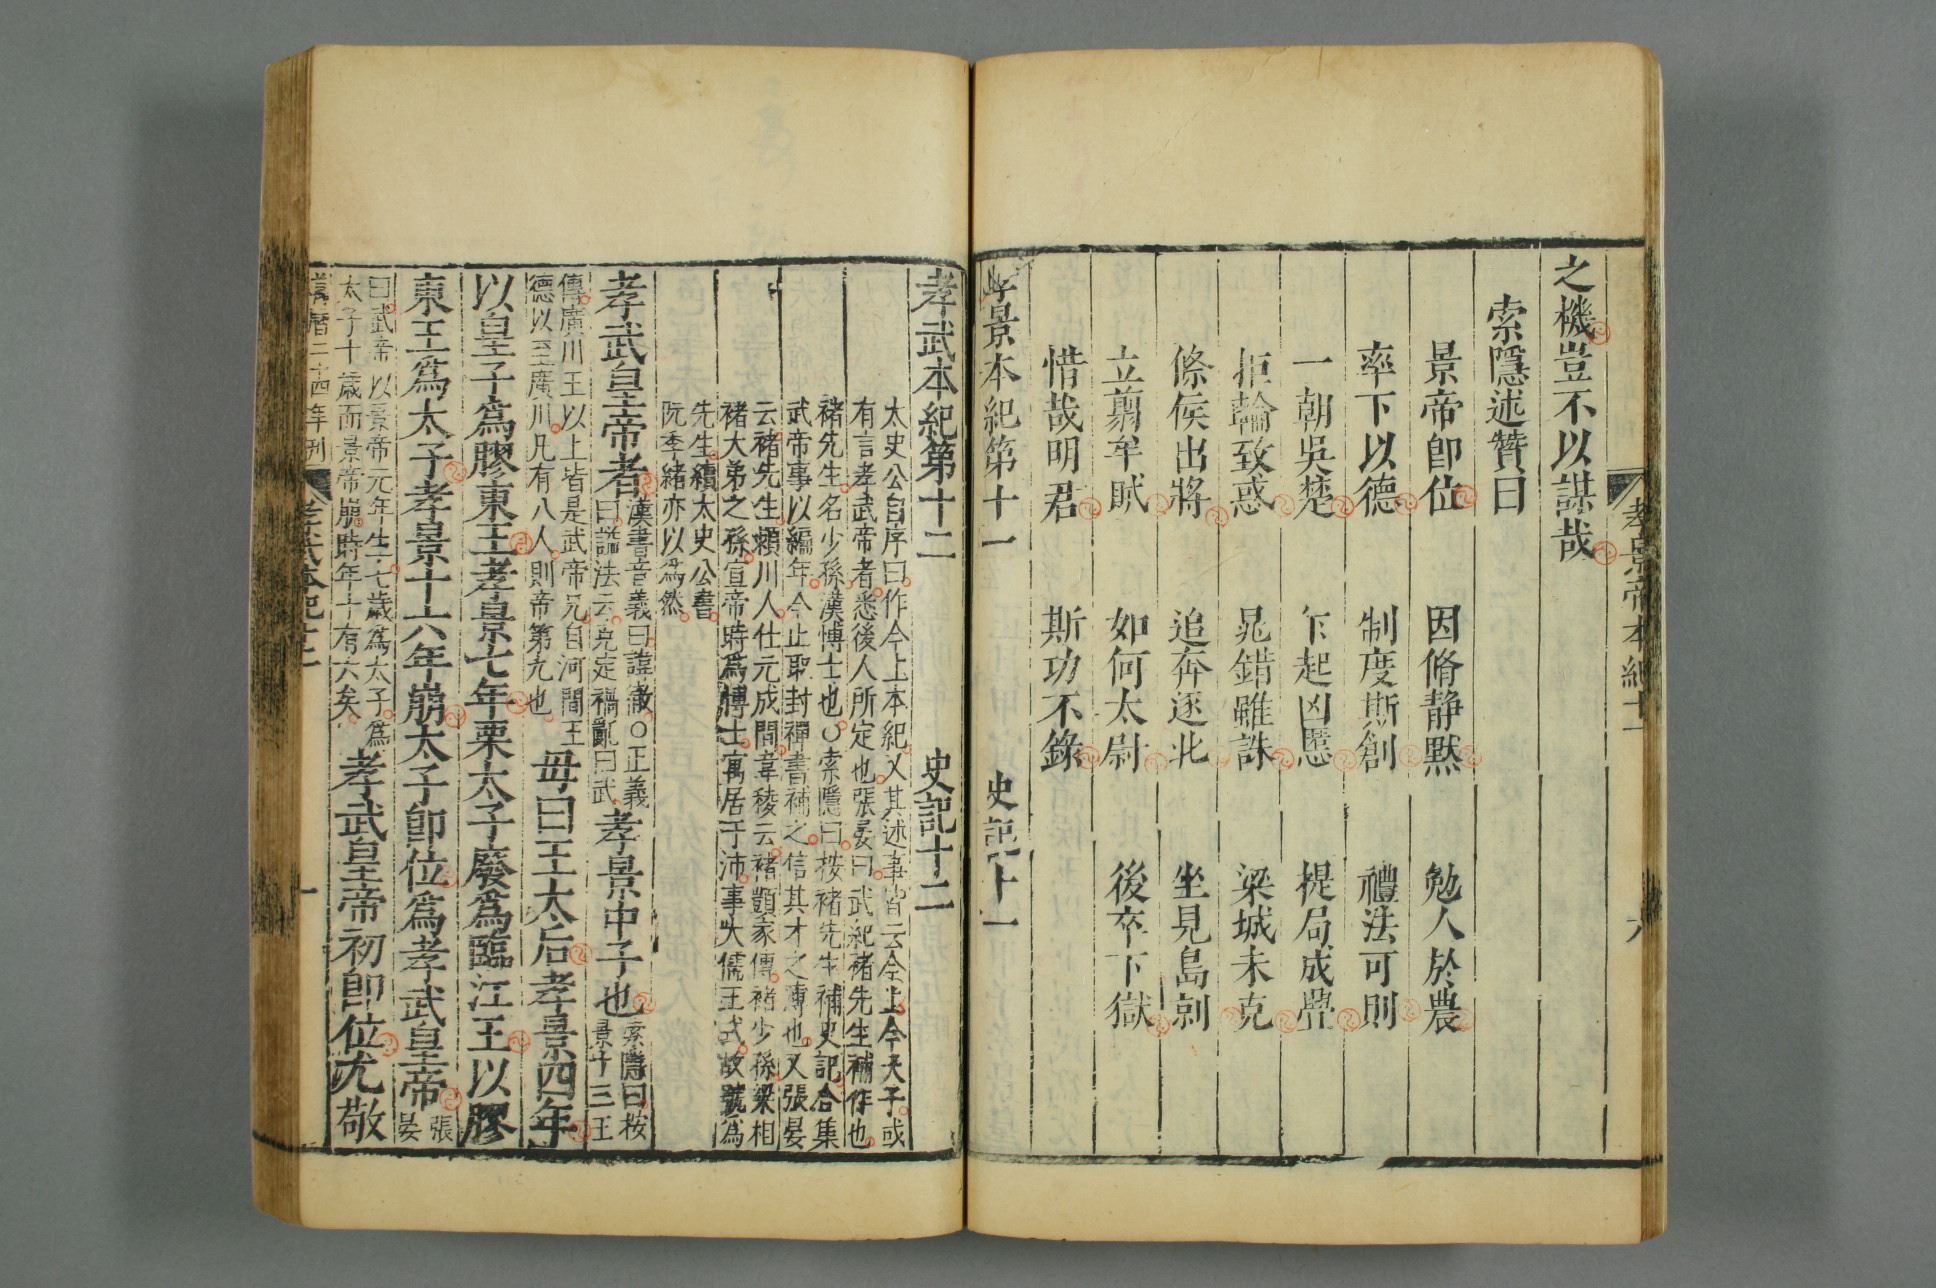 孝景帝本紀十一
六
之機豈不以謀哉
索隱述贊曰
景帝卽位　因脩靜默　勉人於農
率下以德　制度斯創　禮法可則
一朝吳楚　乍起凶慝　提局成釁
拒輪致惑　晁錯雖誅　梁城未克
條侯出將　追奔逐北　坐見島剠
立翦牟賊　如何太尉　後卒下獄
惜哉明君　斯功不錄
孝景本紀第十一　史記十一
孝武本紀第十二　史記十二
太史公自序曰作今上本紀又其述事皆云今上今天子或
有言孝武帝者悉後人所定也張晏曰武紀褚先生補作也
褚先生名少孫漢博士也○索隱曰按褚先生補史記合集
武帝事以編年今止取封禪書補之信其才之薄也又張晏
云褚先生潁川人仕元成間韋稜云褚顗家傳褚少孫梁相
褚大弟之孫宣帝時爲博士寓居于沛事大儒王式故號爲
先生續太史公書
阮孝緒亦以爲然
孝武皇帝者
漢書音義曰諱徹○正義
曰諡法云克定禍亂曰武
孝景中子也
索隱曰按
景十三王
傳廣川王以上皆是武帝兄自河間王
德以至廣川凡有八人則帝第九也
母曰王太后孝景四年
以皇子爲膠東王孝景七年栗太子廢爲臨江王以膠
東王爲太子孝景十六年崩太子卽位爲孝武皇帝
張
晏
曰武帝以景帝元年生七歲爲太子爲
太子十歲而景帝崩時年十有六矣
孝武皇帝初卽位尤敬
萬曆二十四年刊
孝武本紀十二
一